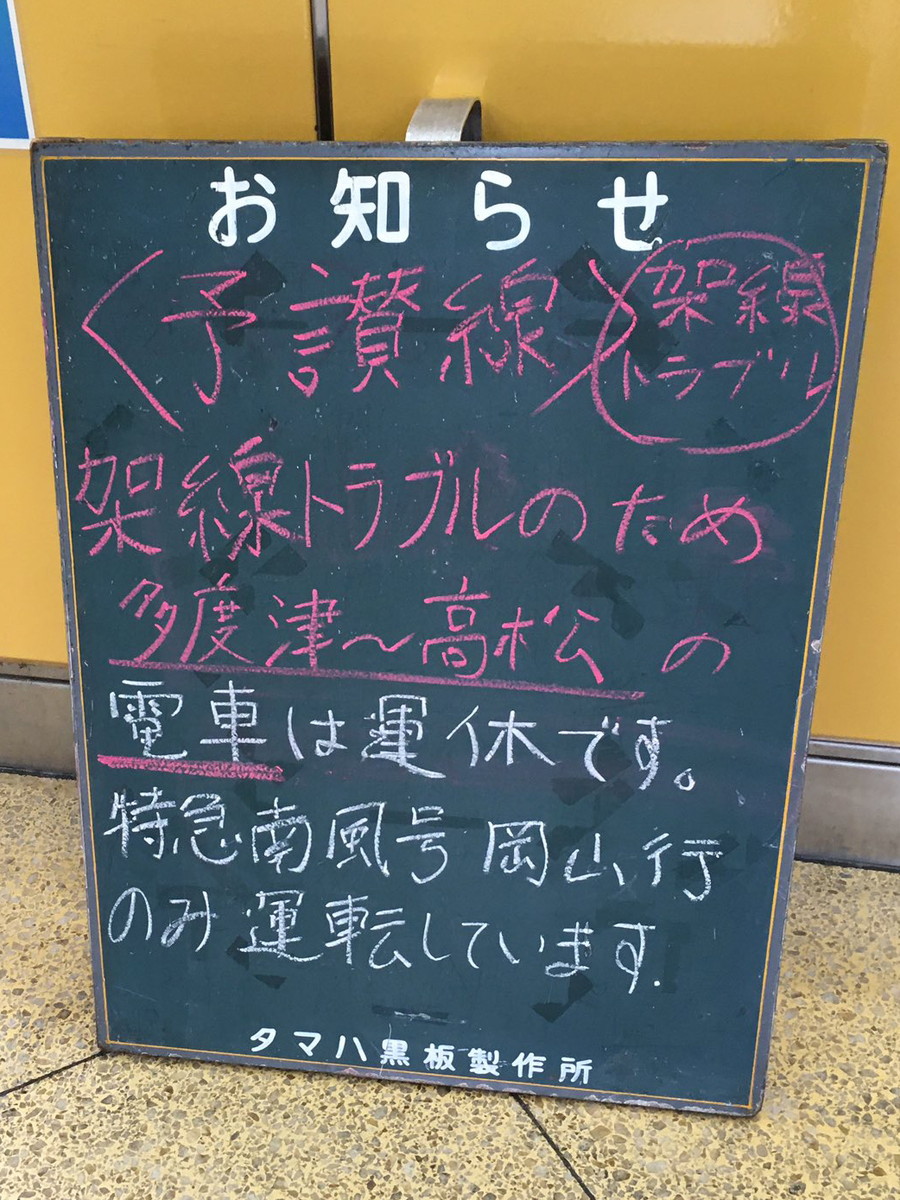 お知らせ
〈予讃線〉
架線
トラブル
架線トラブルのため
多度津〜高松の
電車は運休です。
特急南風号 岡山行
のみ運転しています.
タマハ黒板製作所